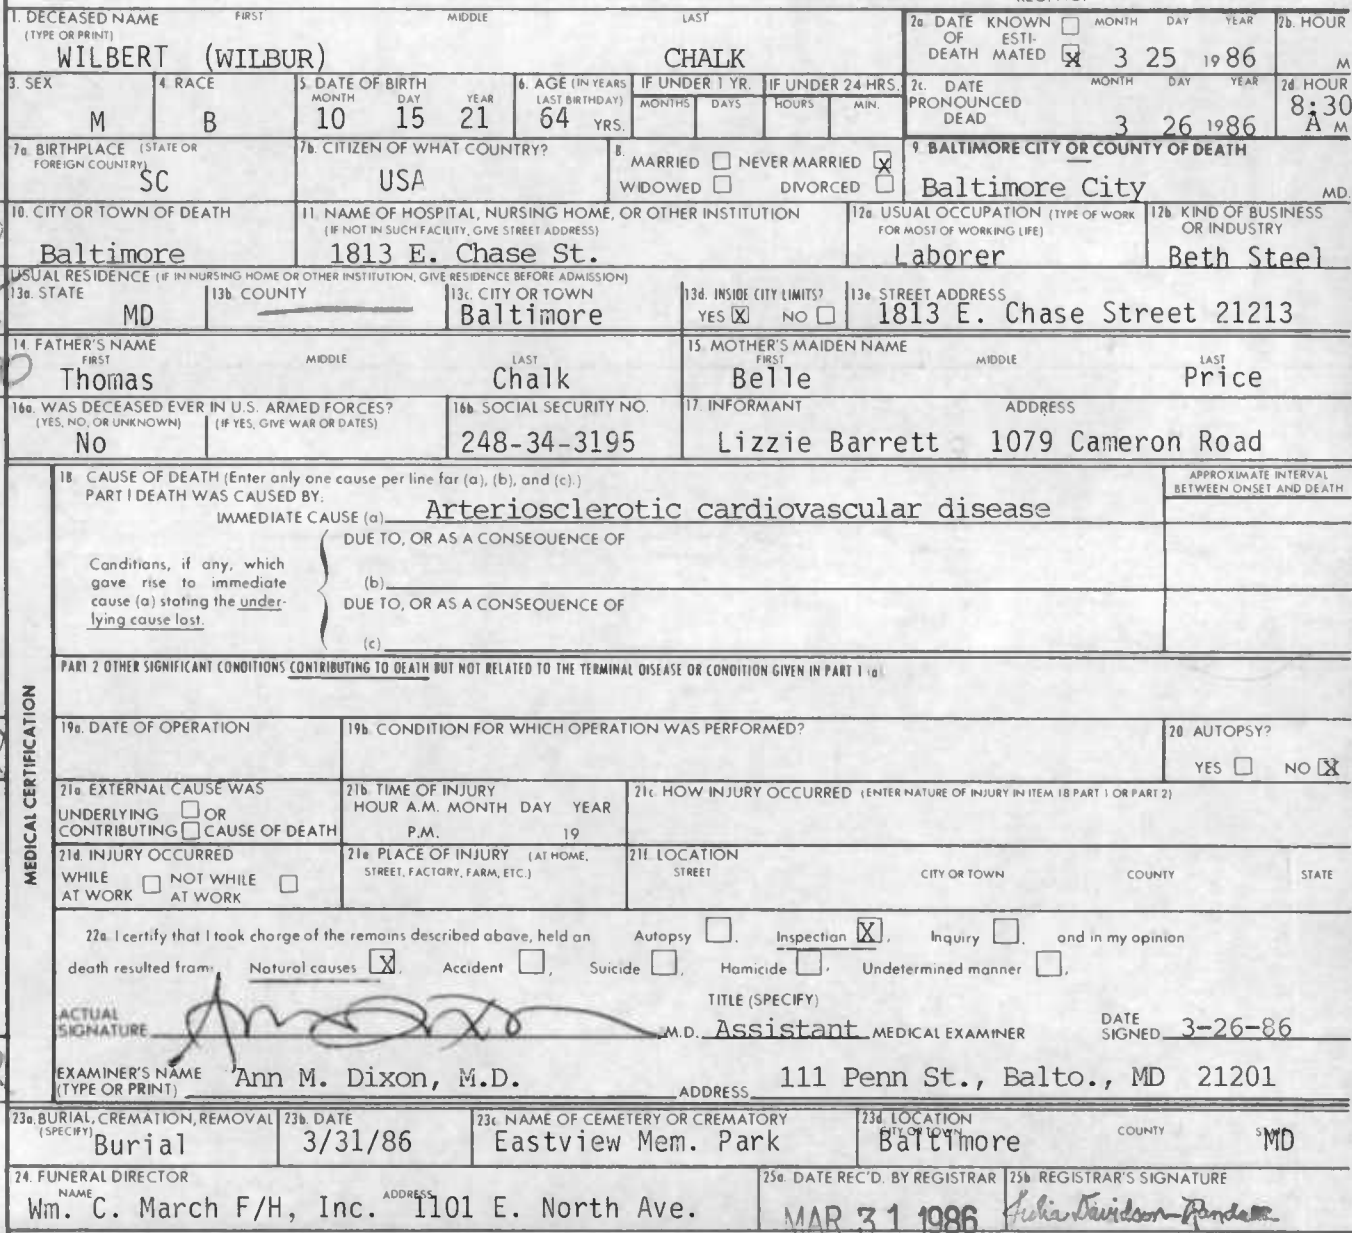 1. DECEASED NAME FIRST MIDDLE LAST
(TYPE OR PRINT)
WILBERT (WILBUR) CHALK
2a. DATE KNOWN ☐ MONTH DAY YEAR
OF ESTI-
DEATH MATED ☒ 3 25 1986
2b. HOUR
M
3. SEX
M
4. RACE
B
5. DATE OF BIRTH
MONTH DAY YEAR
10 15 21
6. AGE (IN YEARS
LAST BIRTHDAY)
64 YRS.
IF UNDER 1 YR.
MONTHS DAYS
IF UNDER 24 HRS.
HOURS MIN.
2c. DATE MONTH DAY YEAR
PRONOUNCED
DEAD 3 26 1986
2d. HOUR
8:30
A M
7a. BIRTHPLACE (STATE OR
FOREIGN COUNTRY)
SC
7b. CITIZEN OF WHAT COUNTRY?
USA
8.
MARRIED ☐ NEVER MARRIED ☒
WIDOWED ☐ DIVORCED ☐
9. BALTIMORE CITY OR COUNTY OF DEATH
Baltimore City MD.
10. CITY OR TOWN OF DEATH
Baltimore
11. NAME OF HOSPITAL, NURSING HOME, OR OTHER INSTITUTION
(IF NOT IN SUCH FACILITY, GIVE STREET ADDRESS)
1813 E. Chase St.
12a. USUAL OCCUPATION (TYPE OF WORK
FOR MOST OF WORKING LIFE)
Laborer
12b. KIND OF BUSINESS
OR INDUSTRY
Beth Steel
USUAL RESIDENCE (IF IN NURSING HOME OR OTHER INSTITUTION, GIVE RESIDENCE BEFORE ADMISSION)
13a. STATE
MD
13b. COUNTY
13c. CITY OR TOWN
Baltimore
13d. INSIDE CITY LIMITS?
YES ☒ NO ☐
13e. STREET ADDRESS
1813 E. Chase Street 21213
14. FATHER'S NAME
FIRST MIDDLE LAST
Thomas Chalk
15. MOTHER'S MAIDEN NAME
FIRST MIDDLE LAST
Belle Price
16a. WAS DECEASED EVER IN U.S. ARMED FORCES?
(YES, NO, OR UNKNOWN) (IF YES, GIVE WAR OR DATES)
No
16b. SOCIAL SECURITY NO.
248-34-3195
17. INFORMANT ADDRESS
Lizzie Barrett 1079 Cameron Road
MEDICAL CERTIFICATION
18 CAUSE OF DEATH (Enter only one cause per line for (a), (b), and (c).)
PART I DEATH WAS CAUSED BY:
IMMEDIATE CAUSE (a) Arteriosclerotic cardiovascular disease
APPROXIMATE INTERVAL
BETWEEN ONSET AND DEATH
DUE TO, OR AS A CONSEQUENCE OF
Conditions, if any, which
gave rise to immediate
cause (a) stating the under-
lying cause last.
(b)
DUE TO, OR AS A CONSEQUENCE OF
(c)
PART 2 OTHER SIGNIFICANT CONDITIONS CONTRIBUTING TO DEATH BUT NOT RELATED TO THE TERMINAL DISEASE OR CONDITION GIVEN IN PART 1 (a)
19a. DATE OF OPERATION
19b. CONDITION FOR WHICH OPERATION WAS PERFORMED?
20 AUTOPSY?
YES ☐ NO ☒
21a. EXTERNAL CAUSE WAS
UNDERLYING ☐ OR
CONTRIBUTING ☐ CAUSE OF DEATH
21b. TIME OF INJURY
HOUR A.M. MONTH DAY YEAR
P.M. 19
21c. HOW INJURY OCCURRED (ENTER NATURE OF INJURY IN ITEM 18 PART 1 OR PART 2)
21d. INJURY OCCURRED
WHILE ☐ NOT WHILE ☐
AT WORK AT WORK
21e PLACE OF INJURY (AT HOME,
STREET, FACTORY, FARM, ETC.)
21f. LOCATION
STREET CITY OR TOWN COUNTY STATE
22a. I certify that I took charge of the remains described above, held an Autopsy ☐, Inspection ☒, Inquiry ☐, and in my opinion
death resulted from: Natural causes ☒, Accident ☐, Suicide ☐, Homicide ☐, Undetermined manner ☐.
ACTUAL
SIGNATURE M.D.
TITLE (SPECIFY)
Assistant MEDICAL EXAMINER
DATE
SIGNED 3-26-86
EXAMINER'S NAME
(TYPE OR PRINT) Ann M. Dixon, M.D.
ADDRESS 111 Penn St., Balto., MD 21201
23a. BURIAL, CREMATION, REMOVAL
(SPECIFY) Burial
23b. DATE
3/31/86
23c. NAME OF CEMETERY OR CREMATORY
Eastview Mem. Park
23d. LOCATION
CITY OR TOWN COUNTY
Baltimore MD
24. FUNERAL DIRECTOR
NAME ADDRESS
Wm. C. March F/H, Inc. 1101 E. North Ave.
25a. DATE REC'D. BY REGISTRAR
MAR 31 1986
25b. REGISTRAR'S SIGNATURE
Julia Davidson-Randall